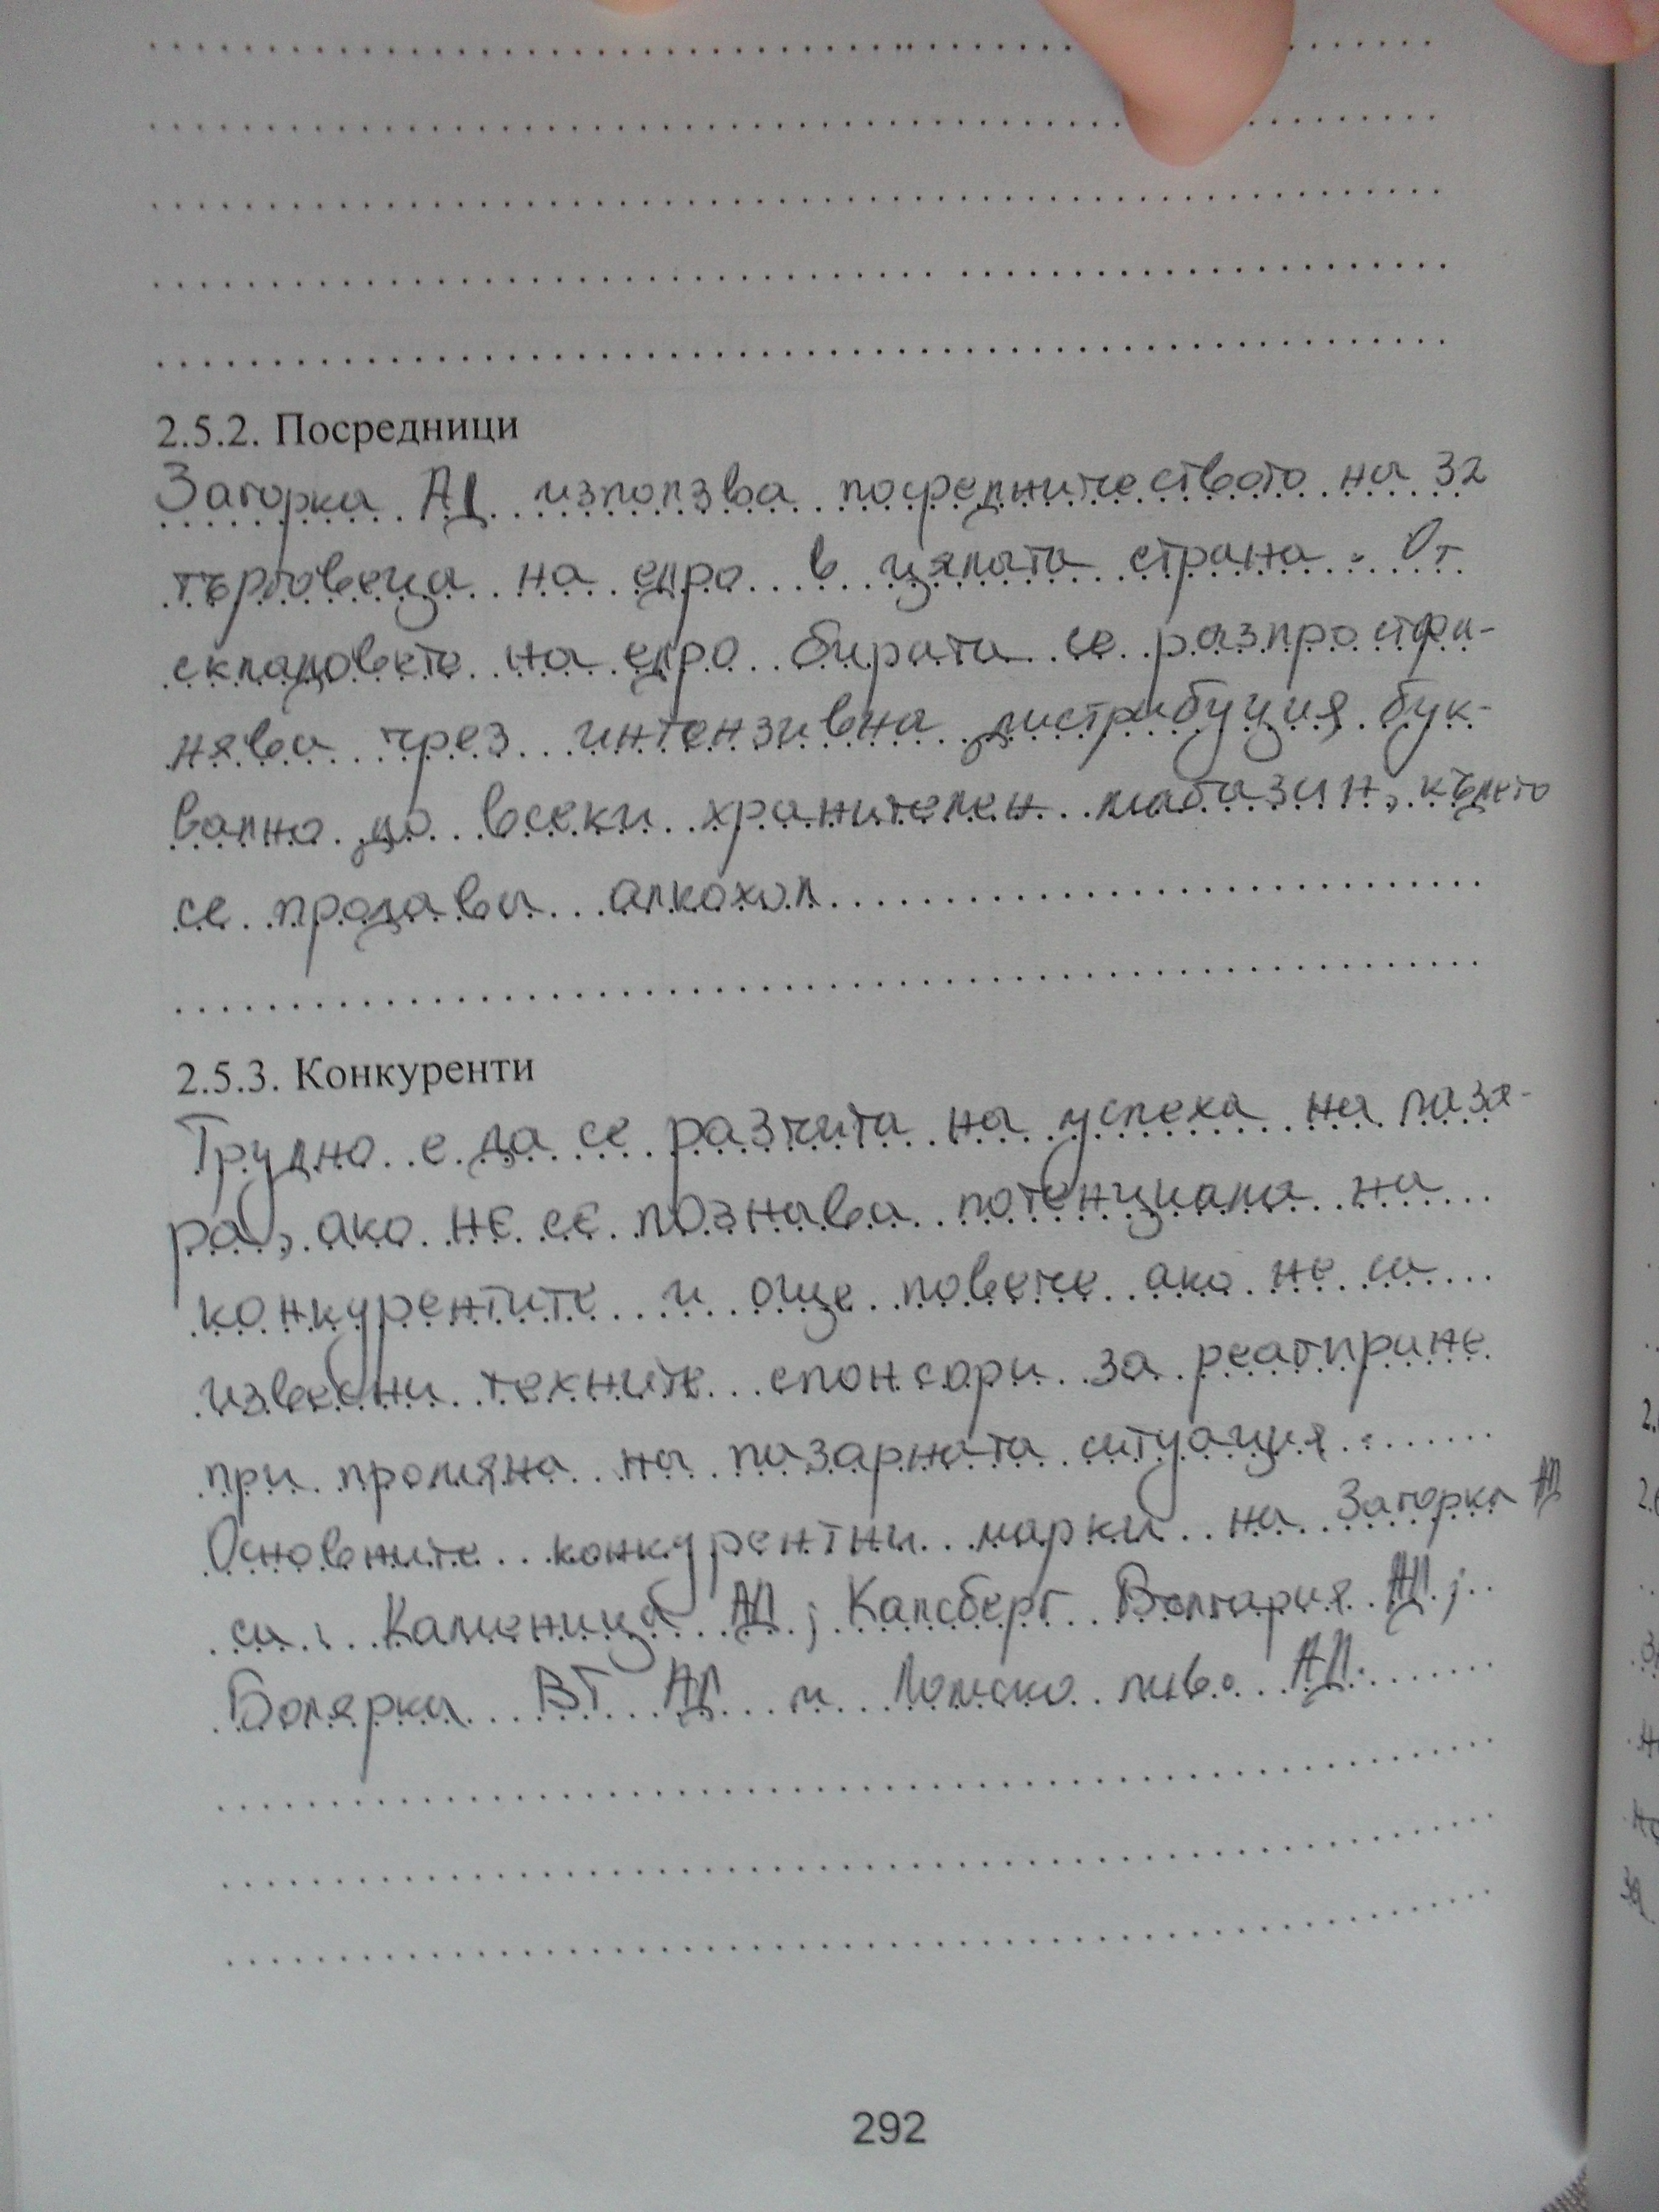 2.5.2. Посредници
Загорка АД използва посредничеството на 32
търговеца на едро в цялата страна. От
складовете на едро бирата се разпростра-
нява чрез интензивна дистрибуция бук-
вално до всеки хранителен магазин, където
се продава алкохол
2.5.3. Конкуренти
Трудно е да се разчита на успеха на паза-
ра, ако не се познава потенциала на
конкурентите и още повече ако не са
известни техните спонсори за реагиране
при промяна на пазарната ситуация.
Основните конкурентни марки на Загорка АД
са: Каменица АД; Калсберг България АД;
Болярка ВТ АД и Ломско пиво АД.
292